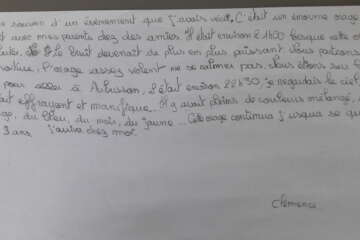 souvien d'un événement que j'avais vécu. C'était un énorme orage
t avec mes parents chez des amies. Il était environ 21h00 lorsque cette
Le bruit devenait de plus en plus puissant. Nous
voiture, l'orage assez violent ne se calmer pas. Nous étions sur
pour aller à Aubusson, il était environ 22h30 je regardais le ciel
ait effrayant et manifique. Il y avait pleins de couleurs mélangé,
ge, du bleu, du noir, du jaune... Cette orage continua jusqua se que
j'arive chez moi.
3 ans
Clémence